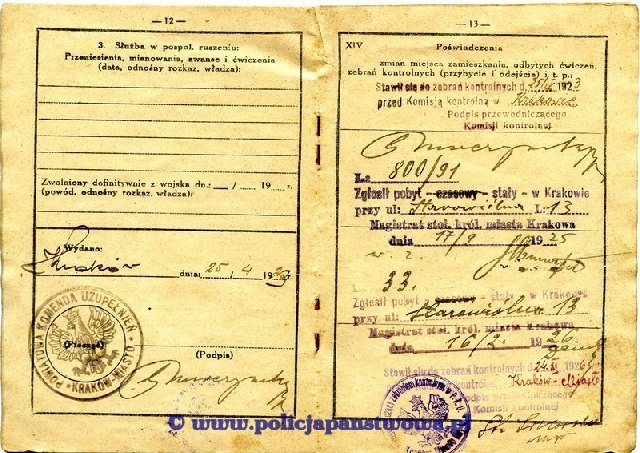 — 12 —
3. Służba w pospol. ruszeniu:
Przeniesienia, mianowania, awanse i ćwiczenia
(data, odnośny rozkaz, władza):
Zwolniony definitywnie z wojska dn. / 19
(powód, odnośny rozkaz, władza):
Wydano:
Kraków dnia 25 4 19
POWIATOWA KOMENDA UZUPEŁNIEŃ
KRAKÓW-MIASTO
(Pieczęć)
(Podpis)
— 13 —
XIV Poświadczenia
zmian miejsca zamieszkania, odbytych ćwiczeń,
zebrań kontrolnych (przybycie i odejście) i t. p.:
Stawił się do zebrań kontrolnych d. 1923
przed Komisją kontrolną w Krakowie
Podpis przewodniczącego
Komisji kontrolnej
L: 800/91
Zgłosił pobyt - czasowy - stały - w Krakowie
przy ul: Starowiślna L: 13
Magistrat stoł. król. miasta Krakowa
dnia 17/9 1925
w. z.
33.
Zgłosił pobyt - czasowy - stały - w Krakowie
przy ul: Starowiślna 13
Magistrat stoł. król. miasta Krakowa
dnia 16/2 1926
Stawił się do zebrań kontrolnych d. 192
Kraków - Miasto
Podpis przewodniczącego
Komisji kontrolnej
© www.policjapanstwowa.pl